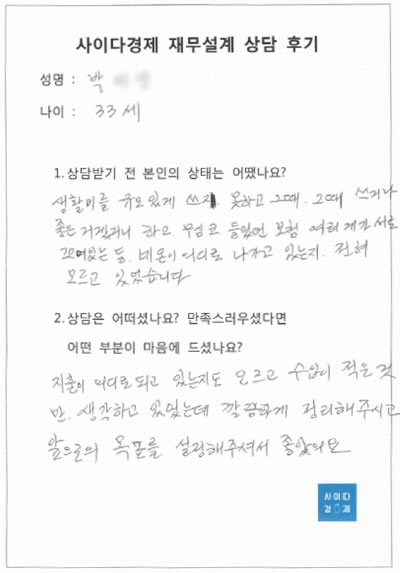 사이다경제 재무설계 상담 후기
성명 : 박
나이 : 33세
1.상담받기 전 본인의 상태는 어땠나요?
생활비를 규모있게 쓰지 못하고 그때. 그때 쓰거나
좋은 거겠거니 하고 무심코 들었던 보험 여러 개가 서로
있는 등. 내 돈이 어디로 나가고 있는지. 전혀
모르고 있었습니다
2.상담은 어떠셨나요? 만족스러우셨다면
어떤 부분이 마음에 드셨나요?
지출이 어디로 되고 있는지도 모르고 수입이 적은 것
만. 생각하고 있었는데 깔끔하게 정리해주시고
앞으로의 목표를 설정해주셔서 좋았어요
사이다
경제